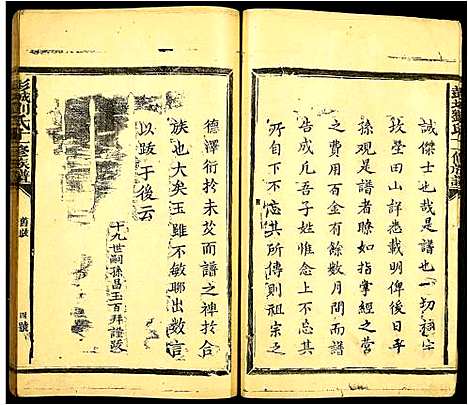 誠傑士也哉是譜也一切祠宇
坟塋田山詳悉載明俾後日子
孫观是譜者瞭如指掌經之營
之費用百金有餘数月間而告
成古凡吾子姓惟念上不忘其
所自下不忘其所傳則祖宗之
德澤衍於未艾而譜之裨於合
族也大矣玉雖不敏聊出数言
以跋于後云
十九世嗣孫昌玉百拜謹跋
彭城刘氏三修族譜
舊跋
四號